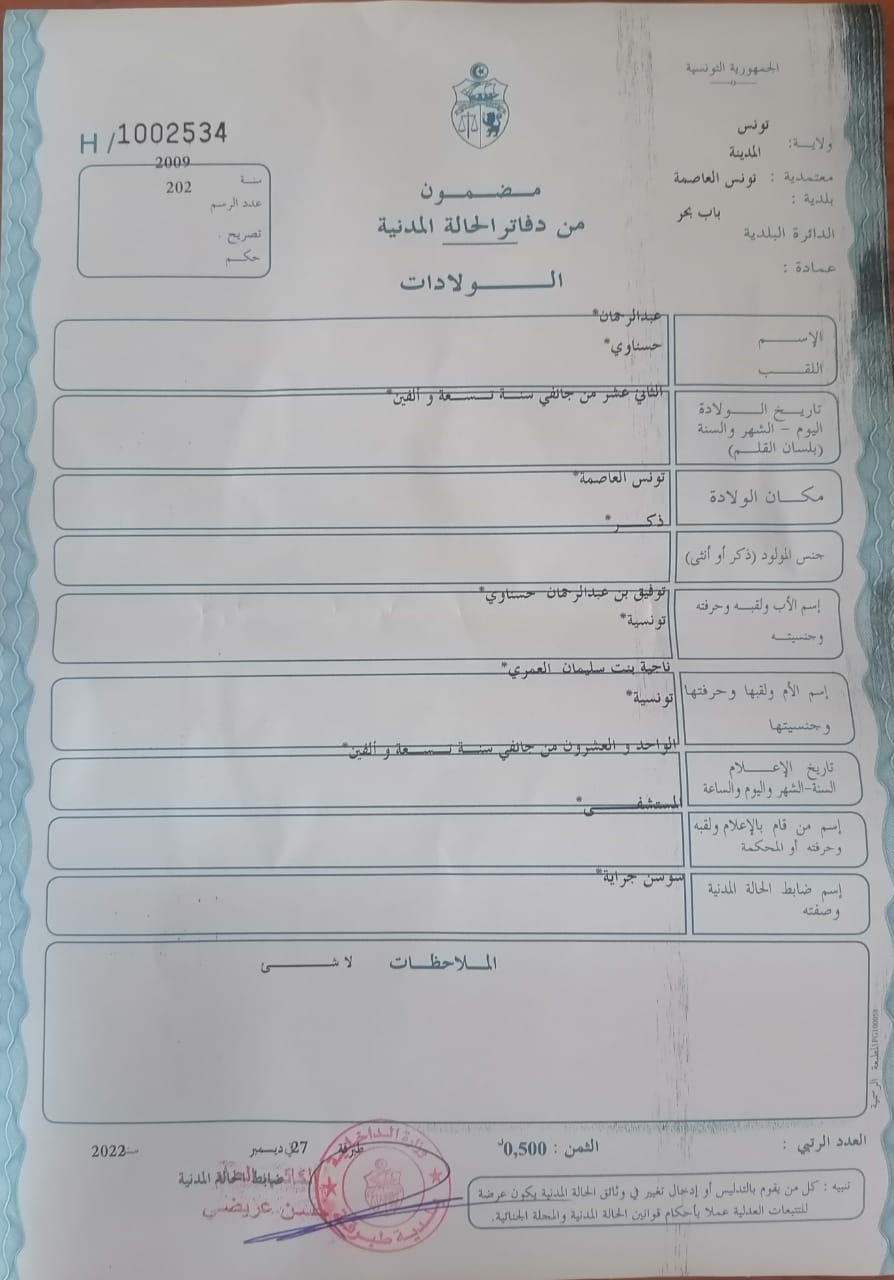 الجمهورية التونسية
ولاية: تونس
المدينة
معتمدية : تونس العاصمة
بلدية :
باب بحر
الدائرة البلدية
عمادة :
H/1002534
2009
سنة
202
عدد الرسم
تصريح .
حكم
مضمون
من دفاتر الحالة المدنية
الولادات
الإسم
عبدالرحمان*
اللقب
حسناوي*
تاريخ الولادة
اليوم - الشهر والسنة
(بلسان القلم)
الثاني عشر من جانفي سنة تسعة و ألفين*
مكان الولادة
تونس العاصمة*
جنس المولود (ذكر أو أنثى)
ذكر*
إسم الأب ولقبه وحرفته
وجنسيته
توفيق بن عبدالرحمان حسناوي*
تونسية*
إسم الأم ولقبها وحرفتها
وجنسيتها
ناجية بنت سليمان العمري*
تونسية*
تاريخ الإعلام
السنة-الشهر واليوم والساعة
الواحد و العشرون من جانفي سنة تسعة و ألفين*
إسم من قام بالإعلام ولقبه
وحرفته أو المحكمة
المستشفى*
إسم ضابط الحالة المدنية
وصفته
سوسن جراية*
الملاحظات
لا شئ
المطبعة الرسمية
العدد الرتبي :
الثمن : 0,500د
طبرقة في 27 ديسمبر سنة 2022
ضابط الحالة المدنية
وزارة الداخلية
بلدية طبرقة
عريضي
تنبيه : كل من يقوم بالتدليس أو إدخال تغيير في وثائق الحالة المدنية يكون عرضة
للتتبعات العدلية عملا بأحكام قوانين الحالة المدنية والمجلة الجنائية.